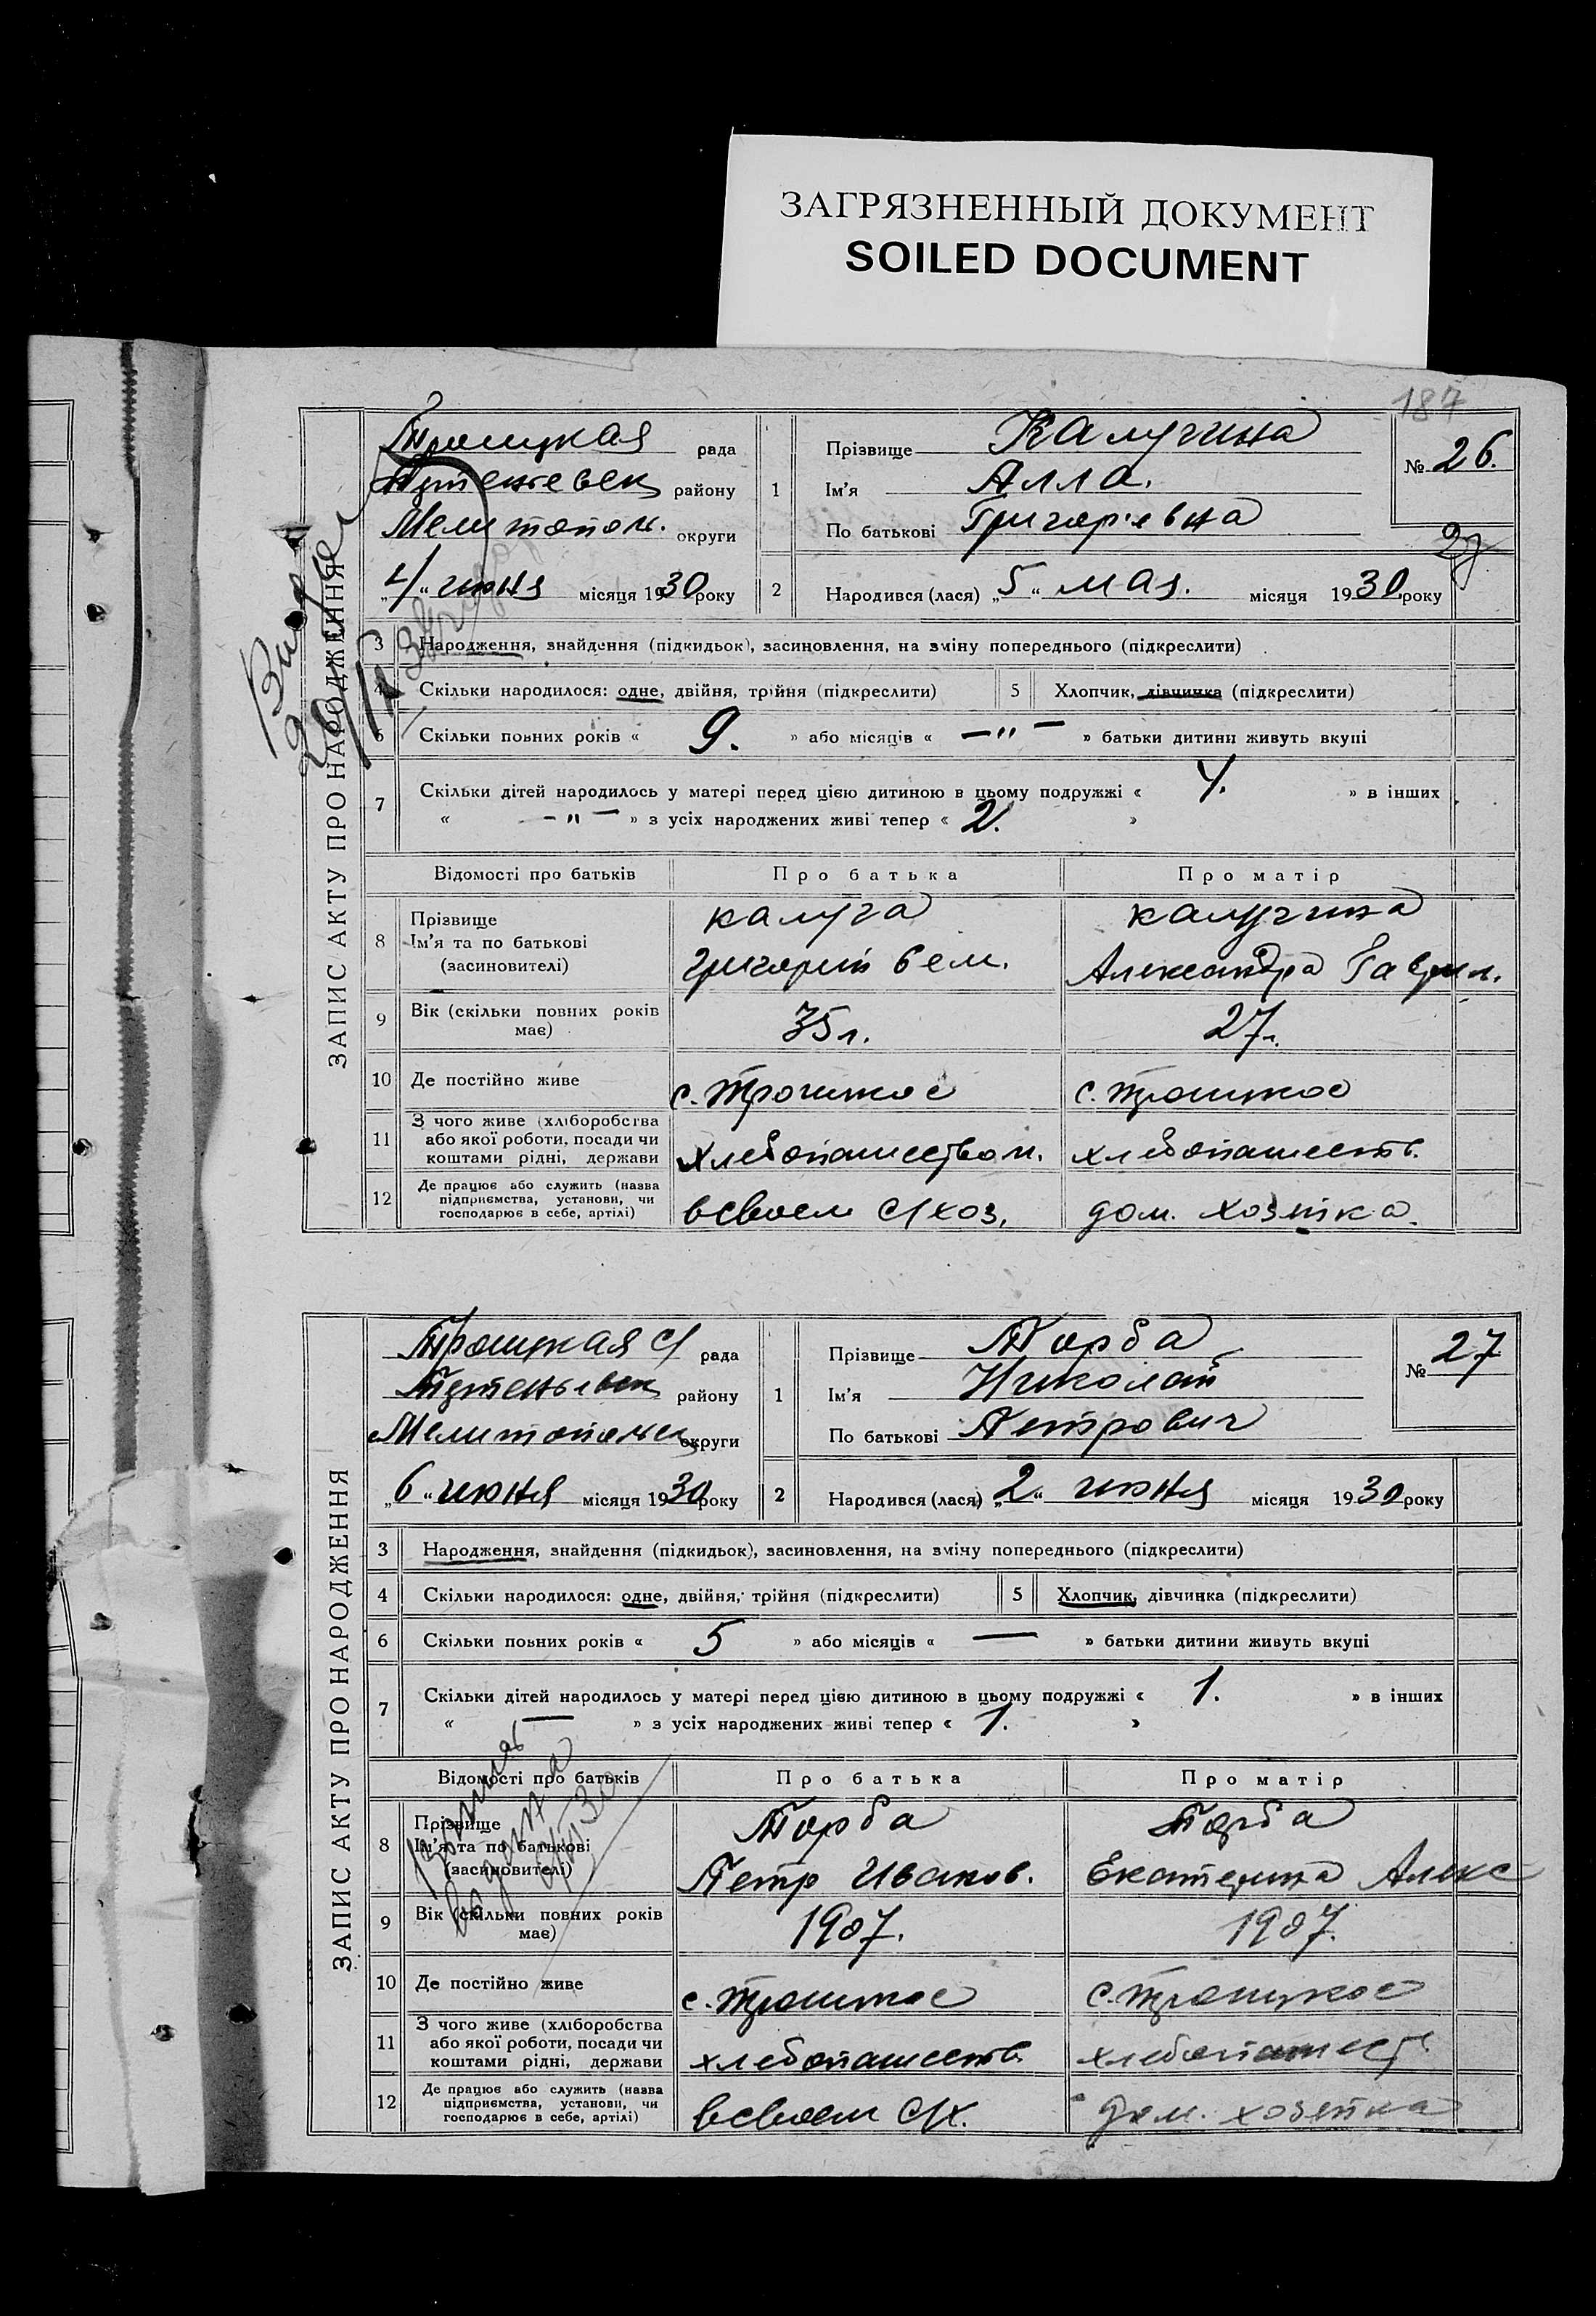 ЗАГРЯЗНЕННЫЙ ДОКУМЕНТ
SOILED DOCUMENT
187
ЗАПИС АКТУ ПРО НАРОДЖЕННЯ
Троицкая рада
району
Мелитопол. округи
„4“ июня місяця 1930 року
1 Прізвище Калугина
Ім'я Алла.
По батькові Григорьевна
№ 26.
27
2 Народився (лася) „5“ мая. місяця 1930 року
3 Народження, знайдення (підкидьок), засиновлення, на зміну попереднього (підкреслити)
4 Скільки народилося: одне, двійня, трійня (підкреслити) 5 Хлопчик, дівчинка (підкреслити)
6 Скільки повних років « 9. » або місяців « —"— » батьки дитини живуть вкупі
7 Скільки дітей народилось у матері перед цією дитиною в цьому подружжі « 4. » в інших
« —"— » з усіх народжених живі тепер « 2. »
Відомості про батьків Про батька Про матір
8 Прізвище
Ім'я та по батькові
(засиновителі)
калуга
григорий
калугина
Александра Гаврил.
9 Вік (скільки повних років має) 35 л. 27 л.
10 Де постійно живе с. Троицкое с. Троицкое
11 З чого живе (хліборобства
або якої роботи, посади чи
коштами рідні, держави
хлебопашеством. хлебопашеств.
12 Де працює або служить (назва
підприємства, установи, чи
господарює в себе, артілі)
в своем с/хоз. дом. хозяйка.
ЗАПИС АКТУ ПРО НАРОДЖЕННЯ
Троицкая с/ рада
району
Мелитопольск округи
„6“ июня місяця 1930 року
1 Прізвище Торба
Ім'я Николай
По батькові Петрович
№ 27
2 Народився (лася) „2.“ июня місяця 1930 року
3 Народження, знайдення (підкидьок), засиновлення, на зміну попереднього (підкреслити)
4 Скільки народилося: одне, двійня, трійня (підкреслити) 5 Хлопчик, дівчинка (підкреслити)
6 Скільки повних років « 5 » або місяців « — » батьки дитини живуть вкупі
7 Скільки дітей народилось у матері перед цією дитиною в цьому подружжі « 1. » в інших
« — » з усіх народжених живі тепер « 1. »
Відомості про батьків Про батька Про матір
8 Прізвище
Ім'я та по батькові
(засиновителі)
Торба
Петр Иванов.
Торба
Екатерина Алекс
9 Вік (скільки повних років має) 1907. 1907.
10 Де постійно живе с. Троицкое с. Троицкое
11 З чого живе (хліборобства
або якої роботи, посади чи
коштами рідні, держави
хлебопашеств. хлебопашест.
12 Де працює або служить (назва
підприємства, установи, чи
господарює в себе, артілі)
в своем с/х. дом. хозяйка